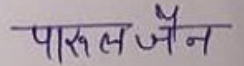 पारूल जैन